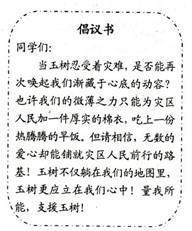 倡议书
同学们：
当玉树忍受着灾难，是否能再
次唤起我们渐藏于心底的动容？
也许我们的微薄之力只能为灾区
人民加一件厚实的棉衣，吃上一份
热腾腾的早饭。但请相信，无数的
爱心却能铺就灾区人民前行的路
基！玉树不仅躺在我们的地图里，
玉树更应立在我们心中！量我所
能，支援玉树！